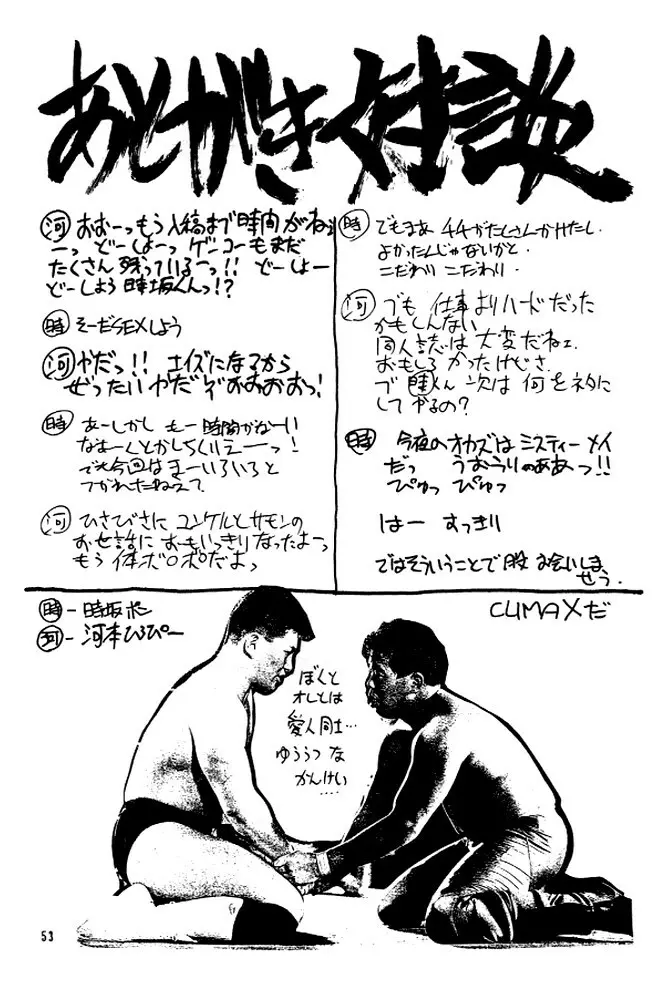 あとがき対談
河 おおーっもう入稿まで時間がねェ
ーっ どーしよーっ ゲンコーもまだ
たくさん残っているーっ!! どーしよー
どーしよう時坂くんっ!?
時 そーだSEXしよう
河 やだっ!! エイズになるから
ぜったいやだぞおおおおっ!
時 あーしかし もー時間がなーい
なまーくとかしちくりえーーっ!
でも今回はまーいろいろと
つかれたねえて
河 ひさびさに ユンケルとサモンの
お世話に おもいっきりなったよーっ
もう体ボロボロだよっ
時 でもまあ チチがたくさんかけたし
よかったんじゃないかと・
こだわりこだわり・
河 でも 仕事よりハードだった
かもしんない
同人誌は大変だねェ
おもしろかったけどさ
で 時くん次は何をネタに
してやるの?
時 今夜のオカズはミスティーメイ
だっ うおううりゃのああっ!!
ぴゅっ ぴゅっ
はー すっきり
ではそういうことで又 お会いしま
せう.
CLIMAXだ
時-時坂ポン
河-河本ひろぴー
ぼくと
オレとは
愛人同士…
ゆううつな
かんけい
….
53